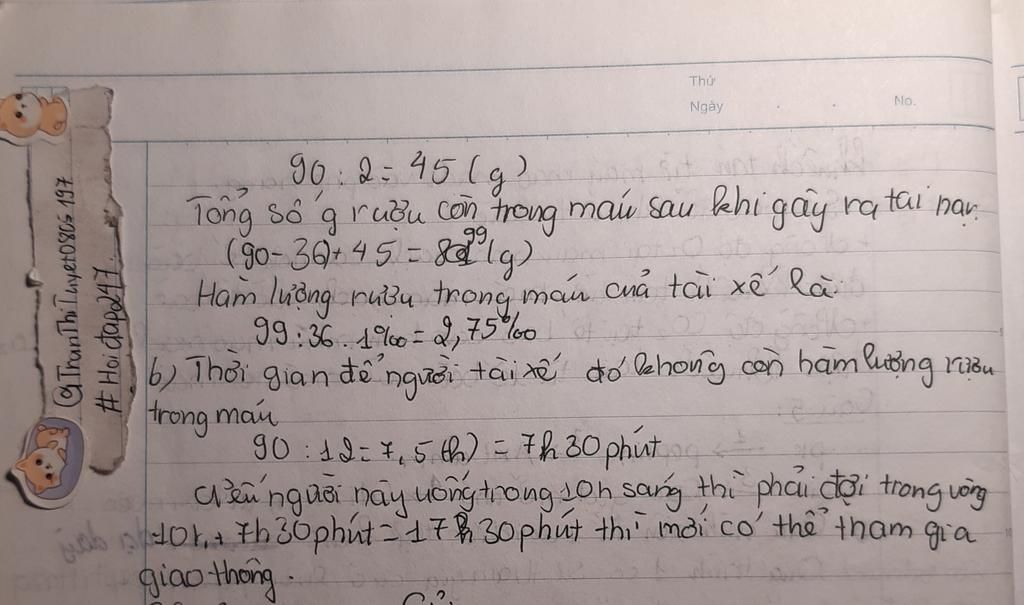 Thứ
Ngày
No.
90 : 2 = 45 (g)
Tổng số g rượu còn trong máu sau khi gây ra tai nạn
(90-36)+45 = 99 (g)
Hàm lượng rượu trong máu của tài xế là:
99 : 36 . 1‰ = 2,75‰
b) Thời gian để người tài xế đó không còn hàm lượng rượu
trong máu
90 : 12 = 7,5 (h) = 7h 30 phút
người này uống trong 10h sáng thì phải đợi trong vòng
10h + 7h30 phút = 17h 30 phút thì mới có thể tham gia
giao thông.
@TranThiTuyet0806197
#Hoidap247.